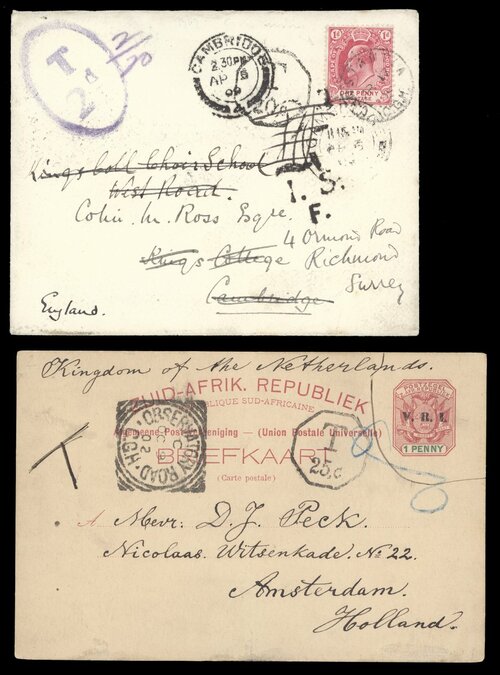 T
2d
CAMBRIDGE
2.30PM
AP 5
09
T
ONE PENNY
T.S.
F.
Kings Coll Choir School
West Road.
Colin. M. Ross Esqre.
4 Ormond Road
Kings College Richmond
Surrey
Cambridge
England.
Kingdom of the Netherlands.
ZUID-AFRIK. REPUBLIEK
REPUBLIQUE SUD-AFRICAINE
Algemeene Postvereeniging — (Union Postale Universelle)
BRIEFKAART
(Carte postale)
V. R. I.
1 PENNY
OBSERVATORY ROAD
02
T
25c
T
A Mevr: D. J. Peck.
Nicolaas Witsenkade. No 22.
Amsterdam.
Holland.